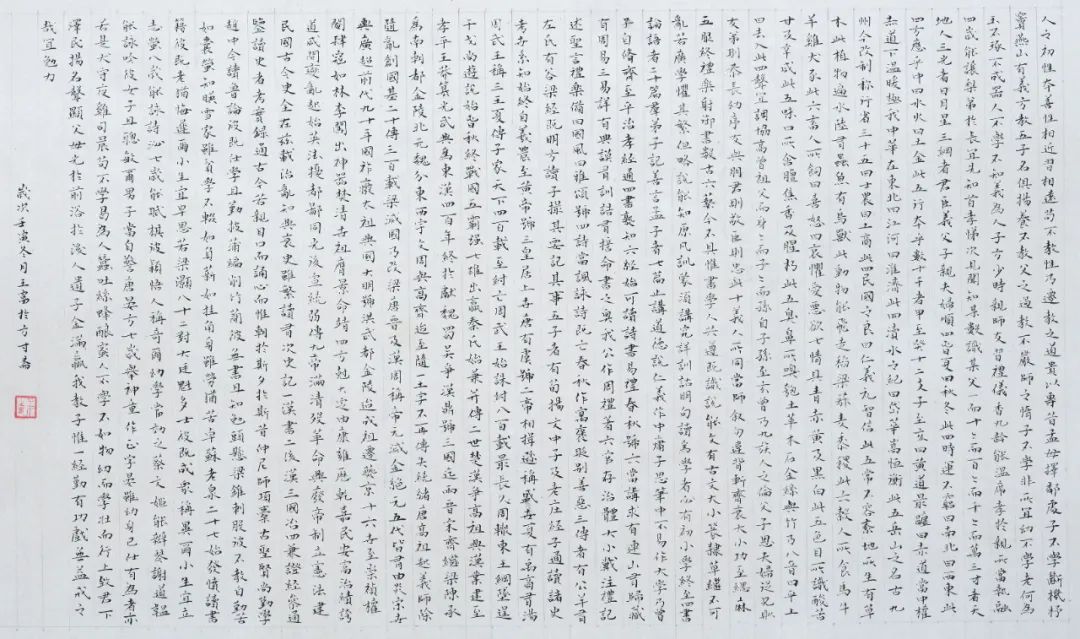 人之初性本善性相近習相遠苟不教性乃遷教之道貴以專昔孟母擇鄰處子不學斷機杼
竇燕山有義方教五子名俱揚養不教父之過教不嚴師之惰子不學非所宜幼不學老何為
玉不琢不成器人不學不知義為人子方少時親師友習禮儀香九齡能溫席孝於親所當執融
四歲能讓梨弟於長宜先知首孝悌次見聞知某數識某文一而十十而百百而千千而萬三才者天
地人三光者日月星三綱者君臣義父子親夫婦順曰春夏曰秋冬此四時運不窮曰南北曰西東此
四方應乎中曰水火木金土此五行本乎數十干者甲至癸十二支子至亥曰黃道日所躔曰赤道當中權
赤道下溫暖極我中華在東北曰江河曰淮濟此四瀆水之紀曰岱華嵩恒衡此五岳山之名古九
州今改制稱行省三十五曰士農曰工商此四民國之良曰仁義禮智信此五常不容紊地所生有草
木此植物遍水陸有蟲魚有鳥獸此動物能飛走稻粱菽麥黍稷此六穀人所食馬牛
羊雞犬豕此六畜人所飼曰喜怒曰哀懼愛惡欲七情具青赤黃及黑白此五色目所識酸苦
甘及辛鹹此五味口所含膻焦香及腥朽此五臭鼻所嗅匏土革木石金絲與竹乃八音曰平上
曰去入此四聲宜調協高曾祖父而身身而子子而孫自子孫至玄曾乃九族人之倫父子恩夫婦從兄則
友弟則恭長幼序友與朋君則敬臣則忠此十義人所同當師敘勿違背斬齊衰大小功至緦麻
五服終禮樂射御書數古六藝今不具惟書學人共遵既識字講說文有古文大小篆隸草繼不可
亂若廣學懼其繁但略說能知原凡訓蒙須講究詳訓詁明句讀為學者必有初小學終至四書
論語者二十篇群弟子記善言孟子者七篇止講道德說仁義作中庸子思筆中不易作大學乃曾
子自修齊至平治孝經通四書熟如六經始可讀詩書易禮春秋號六當講求有連山有歸藏
有周易三易詳有典謨有訓誥有誓命書之奧我周公作周禮著六官存治體大小戴注禮記
述聖言禮樂備曰國風曰雅頌號四詩當諷詠詩既亡春秋作寓褒貶別善惡三傳者有公羊有
左氏有穀梁經既明方讀子撮其要記其事五子者有荀揚文中子及老莊經子通讀諸史
考世系知始終自羲農至黃帝號三皇居上世唐有虞號二帝相揖遜稱盛世夏有禹商有湯
周武王稱三王夏傳子家天下四百載至紂亡周武王始誅紂八百載最長久周轍東王綱墜逞
干戈尚遊說始春秋終戰國五霸強七雄出嬴秦氏始兼并傳二世楚漢爭高祖興漢業建至
孝平王莽篡光武興為東漢四百年終於獻魏蜀吳爭漢鼎號三國迄兩晉宋齊繼梁陳承
為南朝都金陵北元魏分東西宇文周與高齊迨至隨一土宇不再傳失統緒唐高祖起義師除
隨亂創國基二十傳三百載梁滅國乃改梁唐晉及漢周稱帝元滅金絕元五代皆有由炎宋
興廣超前代九十年國祚廢太祖興國大明號洪武都金陵迨成祖遷燕京十六世至崇禎權
閹肆寇如林李闖出神器焚清世祖膺景命靖四方克大定由康雍歷乾嘉民安富治績誇
道咸間變亂起始英法擾都鄙同光後宣統弱傳九帝滿清歿革命興廢帝制立憲法建
民國古今史全在茲載治亂知興衰史雖繁讀有次史記一漢書二後漢三國志四兼證經參通
鑒讀史者考實錄通古今若親目口而誦心而惟朝於斯夕於斯昔仲尼師項橐古聖賢尚勤學
趙中令讀魯論彼既仕學且勤披蒲編削竹簡彼無書且知勉頭懸梁錐刺股彼不教自勤苦
如囊螢如映雪家雖貧學不輟如負薪如掛角身雖勞猶苦卓蘇老泉二十七始發憤讀書
籍彼既老猶悔遲爾小生宜早思若梁灝八十二對大廷魁多士彼既成眾稱異爾小生宜立
志瑩八歲能詠詩泌七歲能賦棋彼穎悟人稱奇爾幼學當效之蔡文姬能辨琴謝道韞
能詠吟彼女子且聰敏爾男子當自警唐晏方七歲舉神童作正字晏雖幼身已仕有為者亦
若是犬守夜雞司晨苟不學曷為人蠶吐絲蜂釀蜜人不學不如物幼而學壯而行上致君下
澤民揚名聲顯父母光於前裕於後人遺子金滿籯我教子惟一經勤有功戲無益戒之
哉宜勉力
歲次壬寅冬月王富於方寸齋